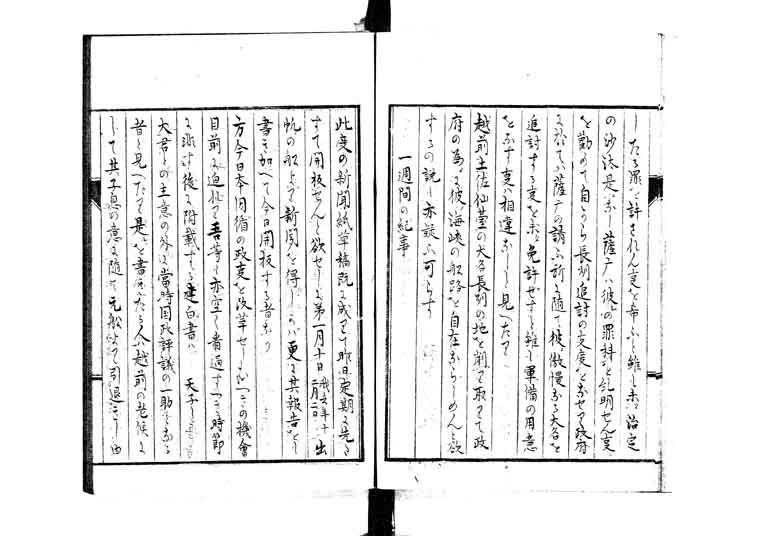 したる罪を許されん事を希ふと雖も未た治定
の沙汰是なし薩广ハ彼の罪科を糺明せん事
を勧めて自から長州追討の支度をなせり政府
に於てハ薩广の請ふ所に随て彼傲慢なる大名を
追討する事を未た免許せすと雖も軍備の用意
をなす事ハ相違なしと見へたり
越前土佐仙臺の大名長州の地を割て取りて政
府の為に彼海峡の船路を自在ならしめんと欲
するの説も亦疑ふ可らす
一週間の紀事
此度の新聞紙草稿既に成りて昨日定期に先き
すて開板せんと欲せしに第一月十日 我去年十二月二日 出
帆の船より新聞を得しかハ更に其報告をも
書き加へて今日開板する者なり
方今日本旧循の政事を改革せしかハこの機會
目前に迫れり吾等も亦空く看過すへき時節
に非す後に附載する建白書ハ 天子
大君との主意の外に當時国政評議の一助となる
者と見へたり是を書記したる人ハ越前の老候に
して其子息の意に随て元船にて引退